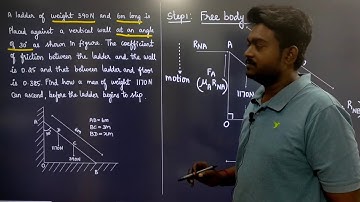 A ladder of weight 390N and 6m long is
Placed against a vertical wall at an angle
of 30° as shown in figure. The coefficient
of friction between the ladder and the wall
is 0.25 and that between ladder and floor
is 0.385. Find how a man of weight 1170N
Can ascend, before the ladder begins to slip.
A
30°
D
C
1170N
390N
O
B
AB = 6m
BC = 3m
BD = xm
Step1: Free body
RNA
A
motion
FA
(μA RNA)
1170N
O